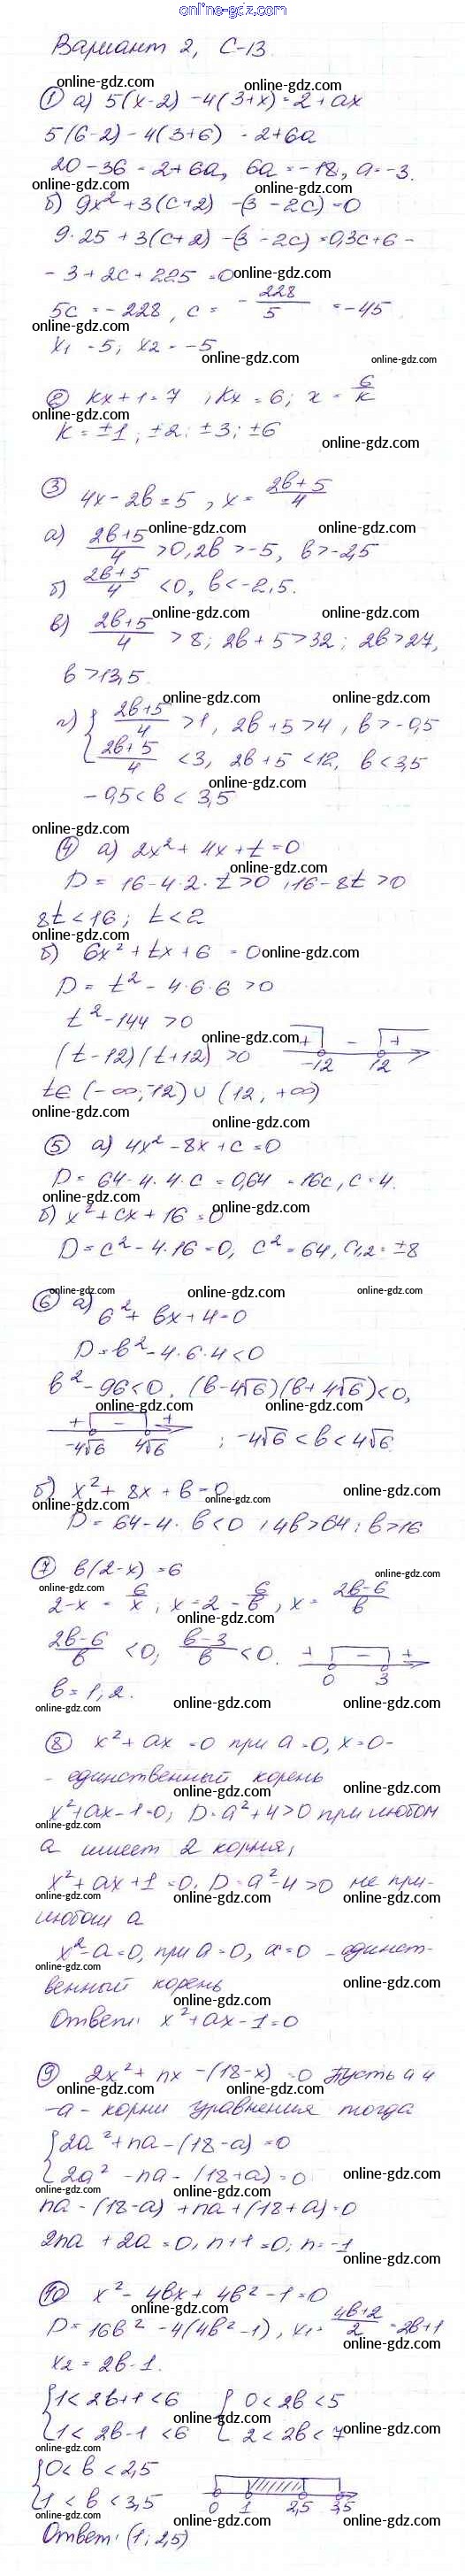 online-gdz.com
Вариант 2, С-13.
online-gdz.com online-gdz.com
① а) 5(x-2) -4(3+x) = 2+ax
5(6-2) - 4(3+6) - 2+6a
20-36 - 2+6a, 6a = -18, a = -3.
online-gdz.com online-gdz.com
б) 9x² + 3(c+2) -(3 - 2c) = 0
9·25 + 3(c+2) - (3 - 2c) = 0, 3c+6 -
- 3+2c+225 = 0 online-gdz.com
5c = -228, c = - 228/5 = -45
online-gdz.com
x₁ - 5; x₂ = -5 online-gdz.com
② kx+1=7 ; kx = 6; x = 6/k
k = ±1; ±2; ±3; ±6 online-gdz.com
③ 4x-2b=5, x = 2b+5/4
online-gdz.com online-gdz.com
а) 2b+5/4 >0, 2b >-5, b>-2,5
б) 2b+5/4 <0, b<-2,5.
online-gdz.com online-gdz.com
в) 2b+5/4 >8; 2b+5>32; 2b>27,
b>13,5.
online-gdz.com online-gdz.com
г) { 2b+5/4 >1, 2b+5>4, b>-0,5
2b+5/4 <3, 2b+5<12, b<3,5
online-gdz.com
-0,5<b<3,5
online-gdz.com
④ а) 2x²+4x+t=0
online-gdz.com
D = 16-4·2·t>0, 16-8t>0
8t<16; t<2
online-gdz.com
б) 6x²+tx+6 = 0 online-gdz.com
D = t² - 4·6·6 >0
t²-144 >0
online-gdz.com + - +
(t-12)(t+12) >0 -12 12
t∈(-∞;-12)∪(12,+∞)
online-gdz.com online-gdz.com
⑤ а) 4x²-8x+c=0
D = 64-4·4·c = 0, 64 = 16c, c=4.
online-gdz.com online-gdz.com
б) x²+cx+16=0
D = c²-4·16=0, c²=64, c1,2=±8
online-gdz.com online-gdz.com online-gdz.com
⑥ а) 6²+bx+4=0
D=b²-4·6·4<0
b²-96<0, (b-4√6)(b+4√6)<0,
online-gdz.com online-gdz.com
+ - +
-4√6 4√6 ; -4√6<b<4√6
б) x²+8x+b=0 online-gdz.com
online-gdz.com online-gdz.com
D = 64-4·b<0, 4b>64; b>16
⑦ b(2-x)=6
online-gdz.com online-gdz.com
2-x = 6/x; x=2 - 6/b, x = 2b-6/b
online-gdz.com
2b-6/b <0; b-3/b <0. + - +
0 3
b=1;2.
online-gdz.com online-gdz.com online-gdz.com
⑧ x²+ax=0 при a=0, x=0-
- единственный корень
online-gdz.com online-gdz.com
x²+ax-1=0; D=a²+4>0 при любом
a имеет 2 корня,
x²+ax+1=0; D=a²-4>0 не при-
online-gdz.com online-gdz.com online-gdz.com
любом a
x²-a=0, при a=0, x=0 - единст-
online-gdz.com
венный корень online-gdz.com
online-gdz.com
Ответ: x²+ax-1=0
⑨ 2x²+nx-(18-x)=0 Пусть a и
online-gdz.com online-gdz.com
-a - корни уравнения тогда
{ 2a²+na-(18-a)=0
2a²-na-(18+a)=0 online-gdz.com
na-(18-a)+na+(18+a)=0
online-gdz.com online-gdz.com
2na+2a=0, n+1=0; n=-1
online-gdz.com
⑩ x²-4bx+4b²-1=0
online-gdz.com
D=16b²-4(4b²-1), x₁= 4b+2/2 =2b+1
online-gdz.com
x₂=2b-1.
{ 1<2b+1<6 { 0<2b<5
online-gdz.com
1<2b-1<6 2<2b<7 online-gdz.com
online-gdz.com
{ 0<b<2,5
1<b<3,5 0 1 2,5 3,5
online-gdz.com online-gdz.com online-gdz.com
Ответ: (1; 2,5)